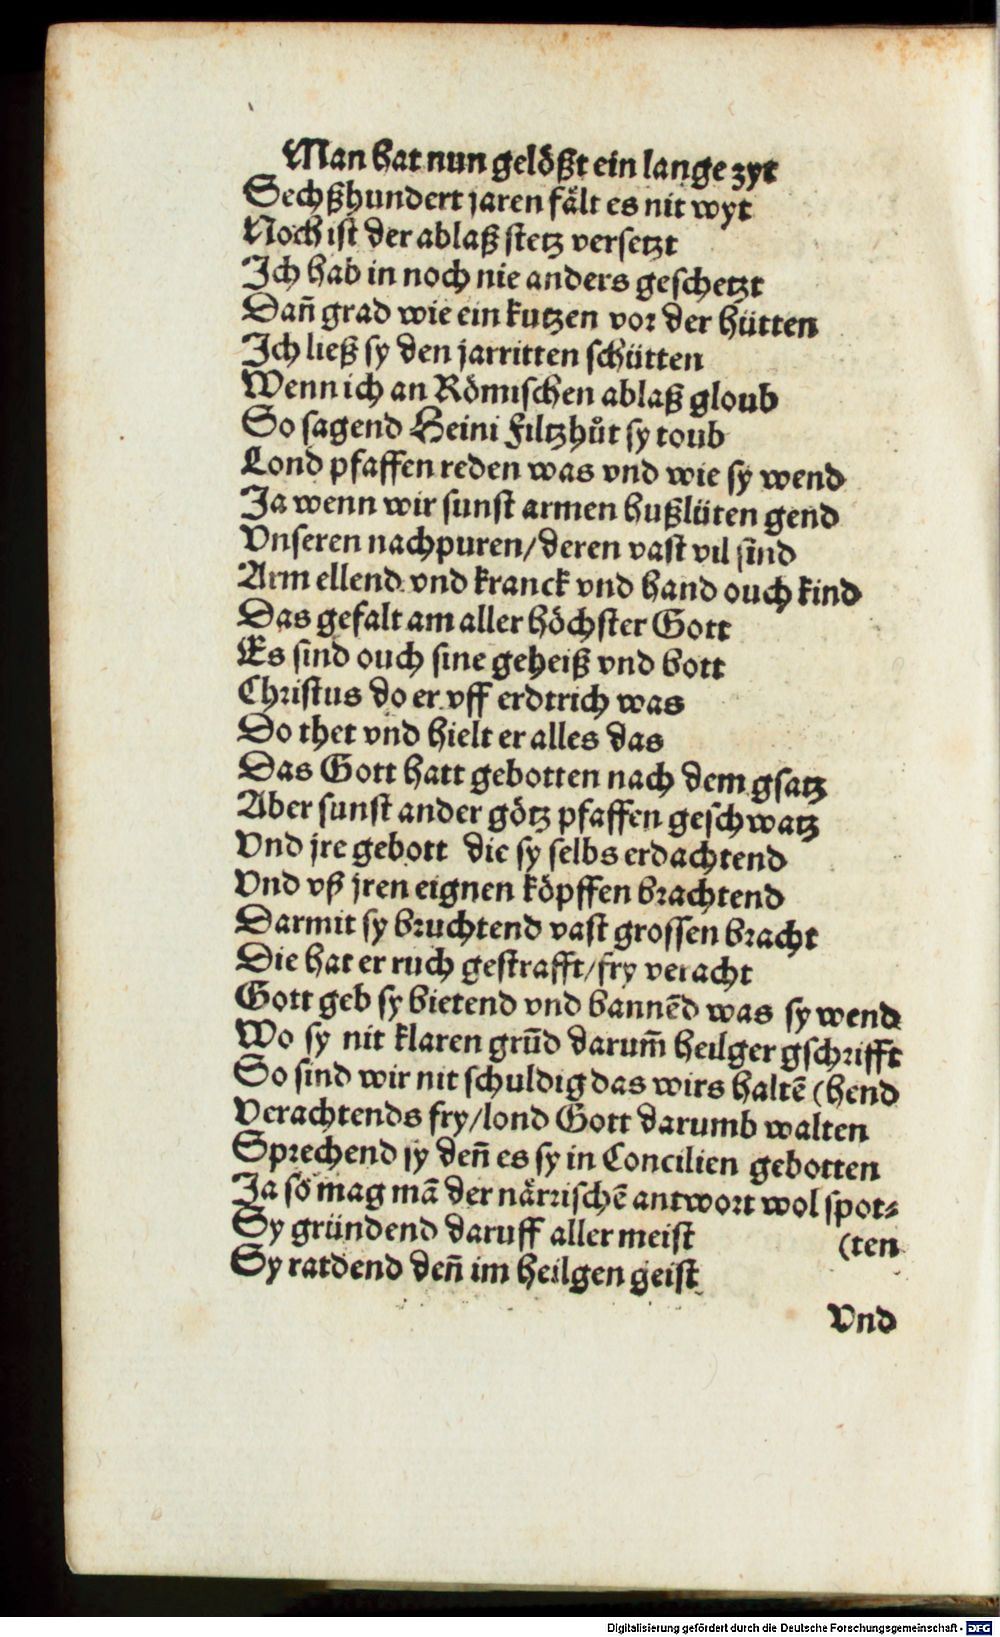 Man hat nun gelößt ein lange zyt
Sechßhundert jaren fält es nit wyt
Noch ist der ablaß stetz versetzt
Ich hab in noch nie anders geschetzt
Dañ grad wie ein kutzen vor der hütten
Ich ließ sy den jarritten schütten
Wenn ich an Römischen ablaß gloub
So sagend Heini Filtzhůt sy toub
Lond pfaffen reden was vnd wie sy wend
Ja wenn wir sunst armen hußlüten gend
Vnseren nachpuren/deren vast vil sind
Arm ellend vnd kranck vnd hand ouch kind
Das gefalt am aller höchster Gott
Es sind ouch sine geheiß vnd bott
Christus do er vff erdtrich was
Do thet vnd hielt er alles das
Das Gott hatt gebotten nach dem gsatz
Aber sunst ander götz pfaffen geschwatz
Vnd jre gebott die sy selbs erdachtend
Vnd vß jren eignen köpffen brachtend
Darmit sy bruchtend vast grossen bracht
Die hat er ruch gestrafft/fry veracht
Gott geb sy bietend vnd bannẽd was sy wend
Wo sy nit klaren grũd darum̃ heilger gschrifft
So sind wir nit schuldig das wirs haltẽ (hend
Verachtends fry/lond Gott darumb walten
Sprechend sy deñ es sy in Concilien gebotten
Ja so mag mã der närrischẽ antwort wol spot⸗
Sy gründend daruff aller meist (ten
Sy ratdend deñ im heilgen geist
Vnd
Digitalisierung gefördert durch die Deutsche Forschungsgemeinschaft - DFG